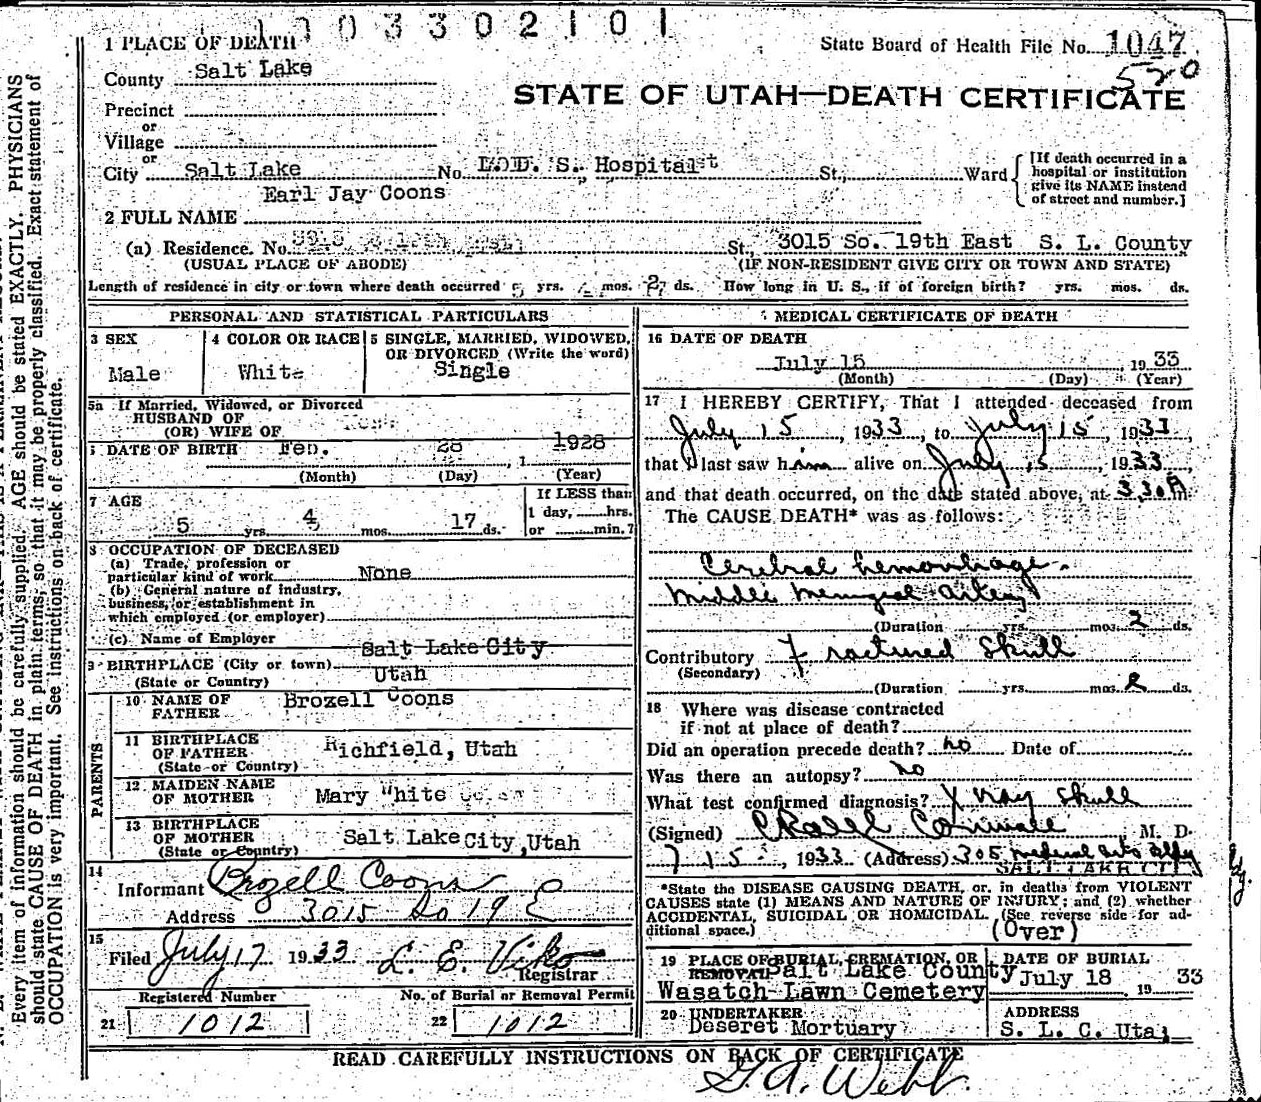 1 0 3 3 0 2 1 0 1
State Board of Health File No. 1047
520
STATE OF UTAH—DEATH CERTIFICATE
1 PLACE OF DEATH
County Salt Lake
Precinct
or
Village
or
City Salt Lake No. L.D. S. Hospital St., Ward
[If death occurred in a hospital or institution give its NAME instead of street and number.]
Earl Jay Coons
2 FULL NAME
(a) Residence. No. St., 3015 So. 19th East S. L. County
(USUAL PLACE OF ABODE) (IF NON-RESIDENT GIVE CITY OR TOWN AND STATE)
Length of residence in city or town where death occurred 5 yrs. mos. ds. How long in U. S., if of foreign birth? yrs. mos. ds.
PERSONAL AND STATISTICAL PARTICULARS
3 SEX
Male
4 COLOR OR RACE
White
5 SINGLE, MARRIED, WIDOWED,
OR DIVORCED (Write the word)
Single
5a If Married, Widowed, or Divorced
HUSBAND OF
(OR) WIFE OF
6 DATE OF BIRTH Feb. 28, 1928
(Month) (Day) (Year)
7 AGE
5 yrs. 4 mos. 17 ds.
If LESS than
1 day, hrs.
or min.?
8 OCCUPATION OF DECEASED
(a) Trade, profession or
particular kind of work None
(b) General nature of industry,
business, or establishment in
which employed (or employer)
(c) Name of Employer
9 BIRTHPLACE (City or town) Salt Lake City
(State or Country) Utah
PARENTS
10 NAME OF
FATHER Brozell Coons
11 BIRTHPLACE
OF FATHER Richfield, Utah
(State or Country)
12 MAIDEN NAME
OF MOTHER Mary White
13 BIRTHPLACE
OF MOTHER Salt Lake City, Utah
(State or Country)
14
Informant Brozell Coons
Address 3015 So 19 E
15
Filed July 17 1933 L. E. Viko
Registrar
Registered Number
21 1012
No. of Burial or Removal Permit
22 1012
MEDICAL CERTIFICATE OF DEATH
16 DATE OF DEATH
July 15, 1933
(Month) (Day) (Year)
17 I HEREBY CERTIFY, That I attended deceased from
July 15, 1933, to July 15, 1933
that I last saw him alive on July 15, 1933,
and that death occurred, on the date stated above, at 3.30 A m.
The CAUSE DEATH* was as follows:
Cerebral hemorrhage.
Middle Meningeal artery
(Duration yrs. mos. 2 ds.
Contributory Fractured Skull
(Secondary)
(Duration yrs. mos. 2 ds.
18 Where was disease contracted
if not at place of death?
Did an operation precede death? no Date of
Was there an autopsy? no
What test confirmed diagnosis? X ray skull
(Signed) M. D.
7 15, 1933 (Address) 305 Medical Arts Bldg
SALT LAKE CITY
*State the DISEASE CAUSING DEATH, or, in deaths from VIOLENT
CAUSES state (1) MEANS AND NATURE OF INJURY; and (2) whether
ACCIDENTAL, SUICIDAL OR HOMICIDAL. (See reverse side for ad-
ditional space.) (Over)
19 PLACE OF BURIAL, CREMATION, OR
REMOVAL Salt Lake County
Wasatch Lawn Cemetery
DATE OF BURIAL
July 18 19 33
20 UNDERTAKER
Deseret Mortuary
ADDRESS
S. L. C. Utah
READ CAREFULLY INSTRUCTIONS ON BACK OF CERTIFICATE
G. A. Webb.
Every item of information should be carefully supplied. AGE should be stated EXACTLY. PHYSICIANS
should state CAUSE OF DEATH in plain terms, so that it may be properly classified. Exact statement of
OCCUPATION is very important. See instructions on back of certificate.